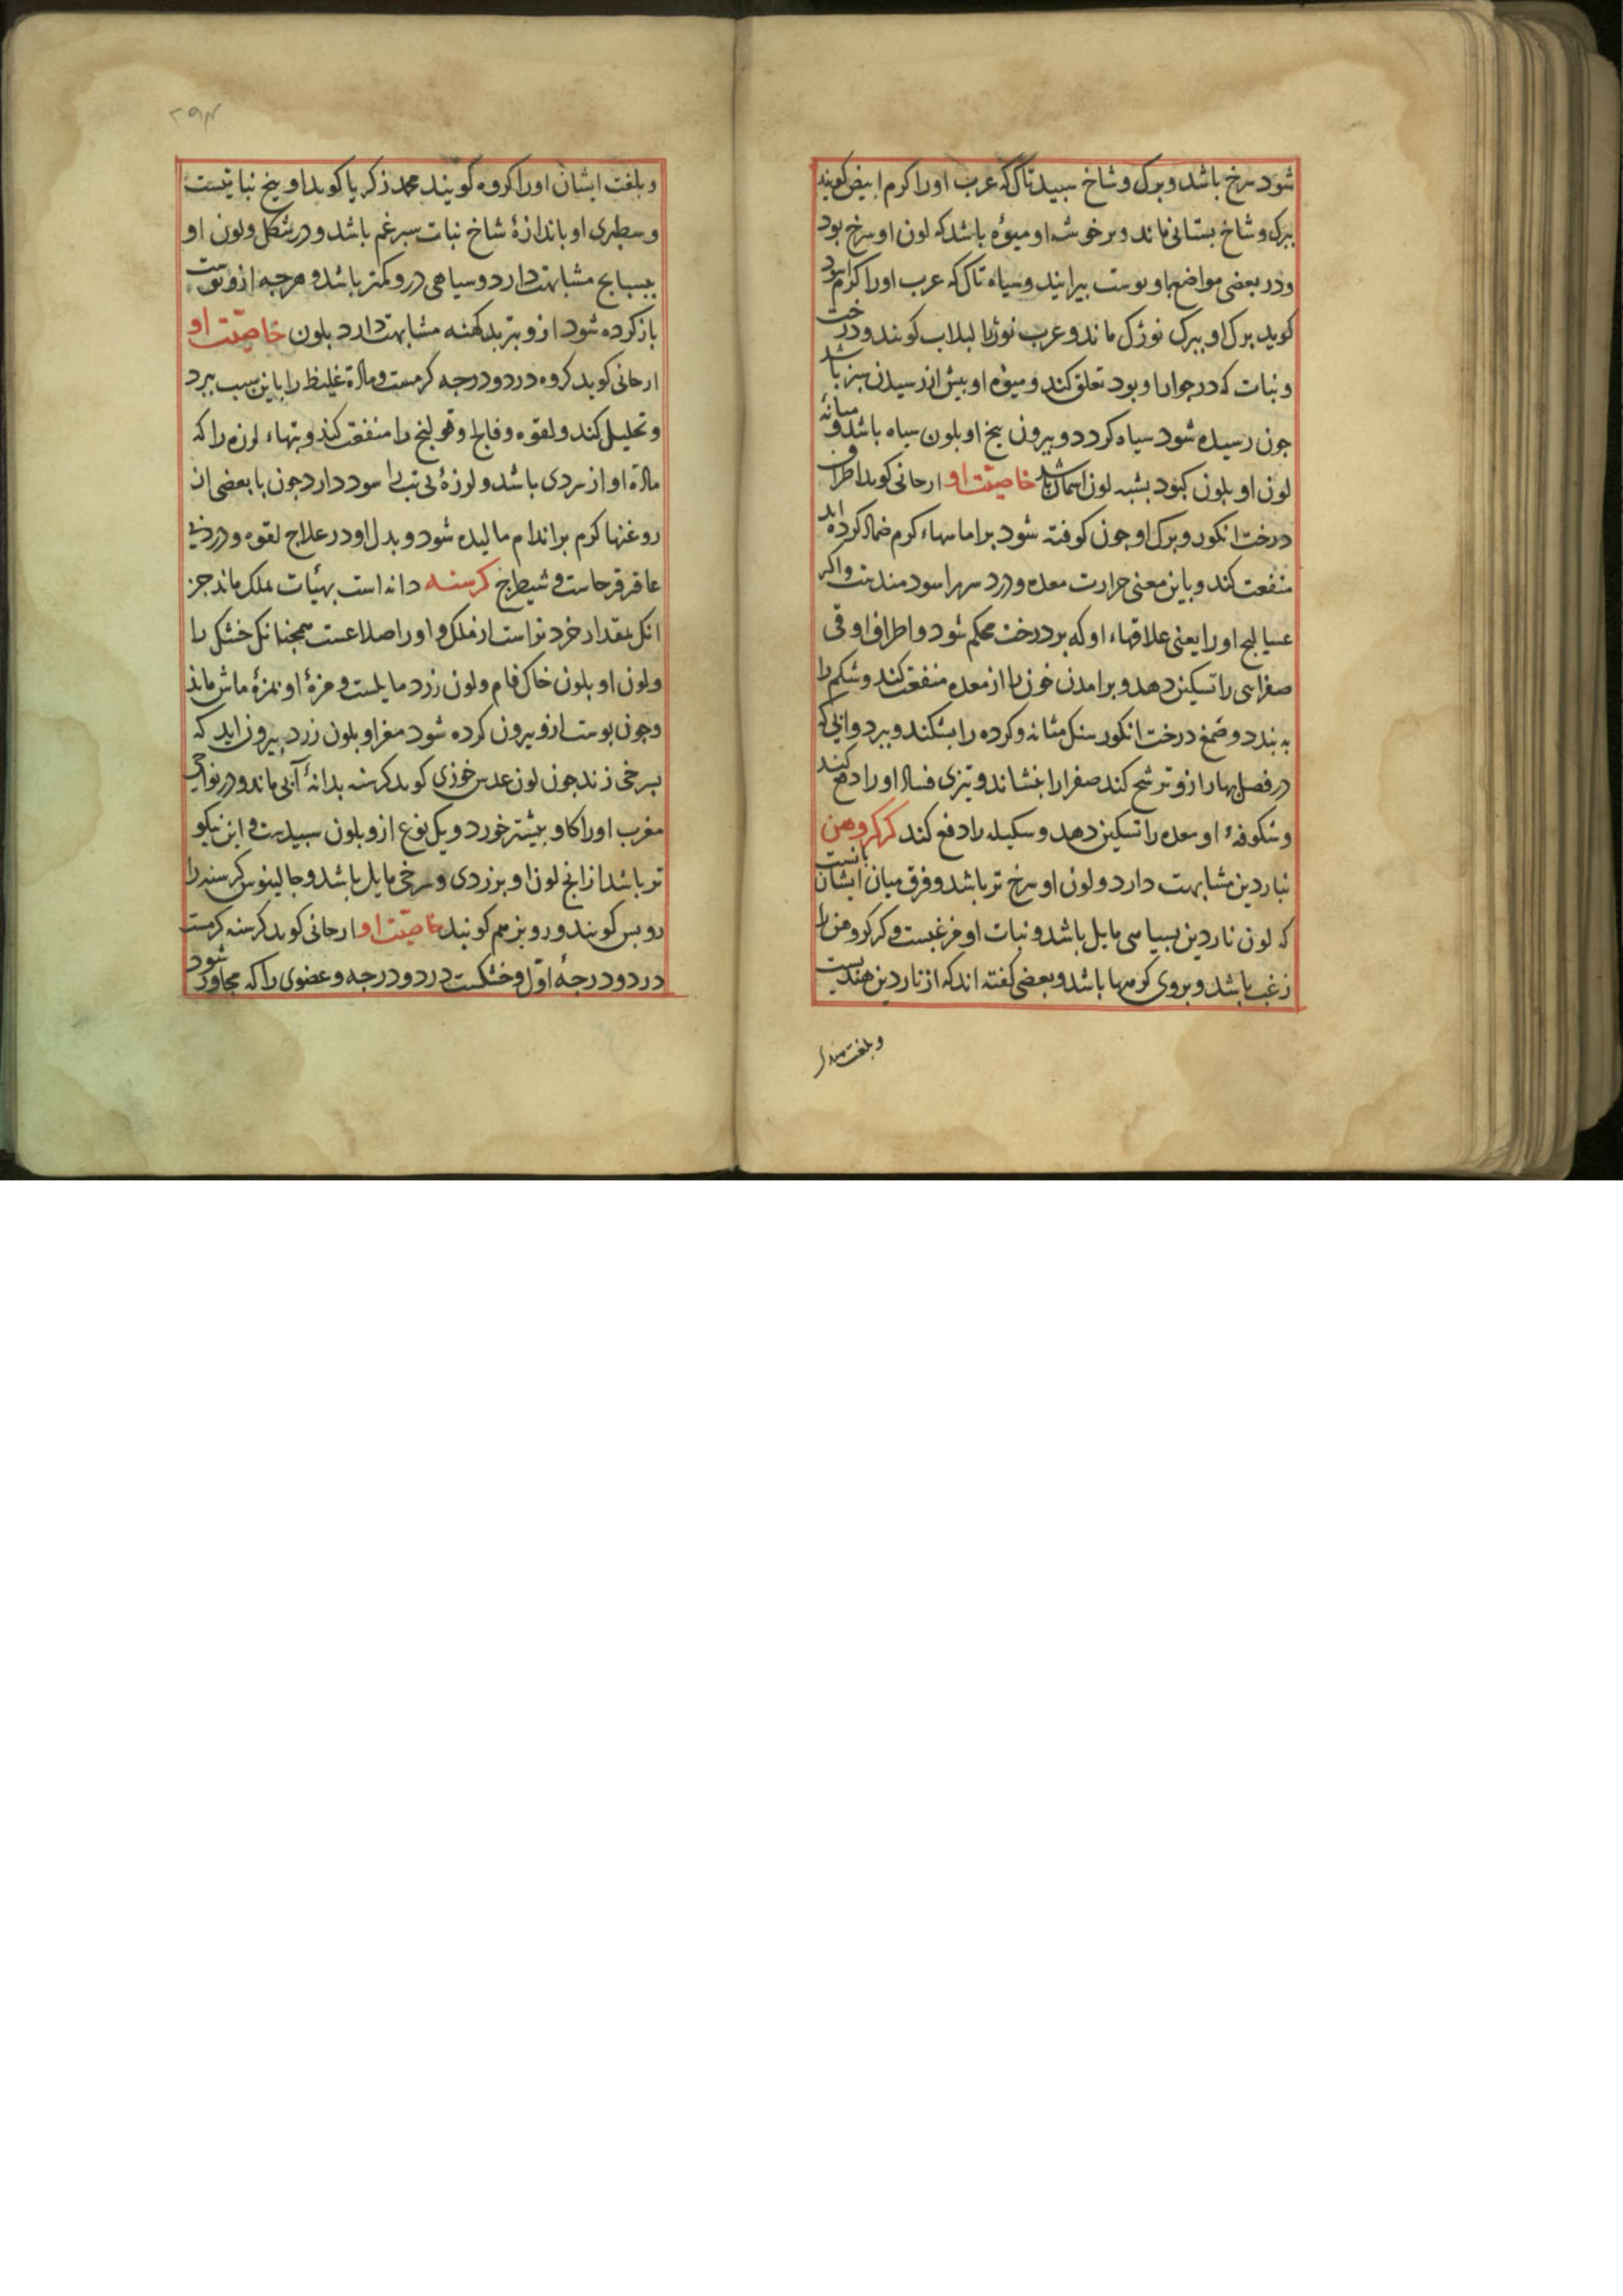 شود سرخ باشد و برک و شاخ سبید تاک که عرب او را کرم ابیض کویند
ببرک و شاخ بستانی ماند و بر خوشه او میوه باشد که لون او سرخ بود
و در بعضی مواضع باو بوست بیرایند و سیاه تاک که عرب او را کرم اسود
کوید برک او ببرک نوژک ماند و عرب نوژ را لبلاب کویند و درخت
و نبات که در جوار او بود تعلق کند و میوه او بیش از رسیدن سبز باشد
جون رسیده شود سیاه کردد و بیرون بیخ او بلون سیاه باشد و میانه
لون او بلون کبود بشبه لون خاصیت او ارحانی کوید اطراف
درخت انکور و برک او جون کوفته شود بر اماسهاء کرم ضماد کرده اید
منفعت کند و باین معنی حرارت معده و درد سر را سودمند است و اکر
عسالیج او را یعنی علاقهاء او که بر درخت محکم شود و اطراف او قی
صفرایی را تسکین دهد و برامدن خون را از معده منفعت کند و شکم را
به بندد و ضمغ درخت انکور سنک مثانه و کرده را بشکند و ببرد و ابی که
در فصل بهار ازو ترشح کند صفرا را بنشاند و تیزی فساد او را دفع کند
و شکوفهٔ او معده را تسکین دهد و سکیله را دفع کند کرکروهن
بناردین مشابهت دارد و لون او سرخ تر باشد و فرق میان ایشان بانست
که لون ناردین بسیاهی مایل باشد و نبات او مزغبست و کرکروهن را
زغب باشد و بروی کرمها باشد و بعضی کفته اند که از ناردین هندیست
و بلغت
۲۹۴
و بلغت ایشان او را کروه کویند محمد زکریا کوید او بیخ نباتیست
و سطبری او باندازهٔ شاخ نبات سبرغم باشد و در شکل و لون او
ببسبایج مشابهت دارد و سیاهی درو کمتر باشد و هرجه ازو بوست
باز کرده شود ازو بتربد کهنه مشابهت دارد بلون خاصیت او
ارحانی کوید کروه در دو درجه کرمست و مادة غلیظ را باین سبب ببرد
و تحلیل کند و لقوه و فالج و قولنج را منفعت کند و تبهاء لرزه را که
مادة او از سردی باشد و لرزهٔ بی تب را سود دارد جون با بعضی از
روغنها کرم بر اندام مالیده شود و بدل او در علاج لقوه و درد
عاقرقرحاست و شیطرج کرسنه دانه است بهیٔات بملک ماند جز
انک بمقدار خرد تر است از ملک و او را اصلاعست همجنانک خشک را
و لون او بلون خاک فام و لون زرد مایلست و مزهٔ او بمزهٔ ماش ماند
و جون بوست ازو بیرون کرده شود مغز او بلون زرد بیرون اید که
بسرخی زند جون لون عدس خوزی کوید کرسنه بدانهٔ آبی ماند و در نواحی
مغرب او را کاو بیشتر خورد و یک نوع ازو بلون سبیدست و این نیکو
تر باشد از انج لون او بزردی و سرخی مایل باشد و جالینوس کرسنه را
روبس کویند و روبز هم کویند خاصیت او ارحانی کوید کرسنه کرمست
در دو درجهٔ اوّل و خشکست در دو درجه و عضوی را که مجاور شود